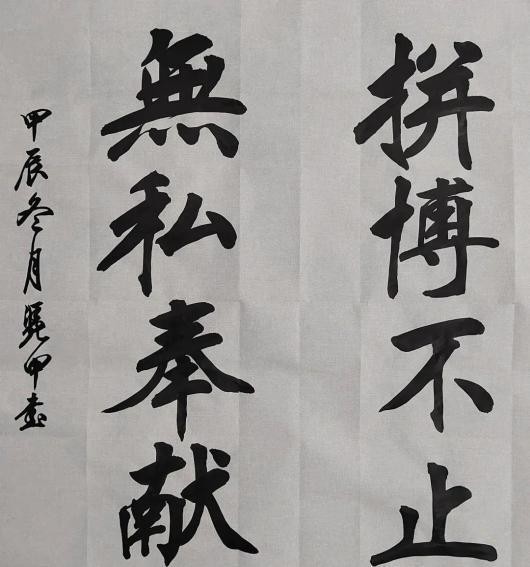 拼博不止
無私奉献
甲辰冬月 甲書